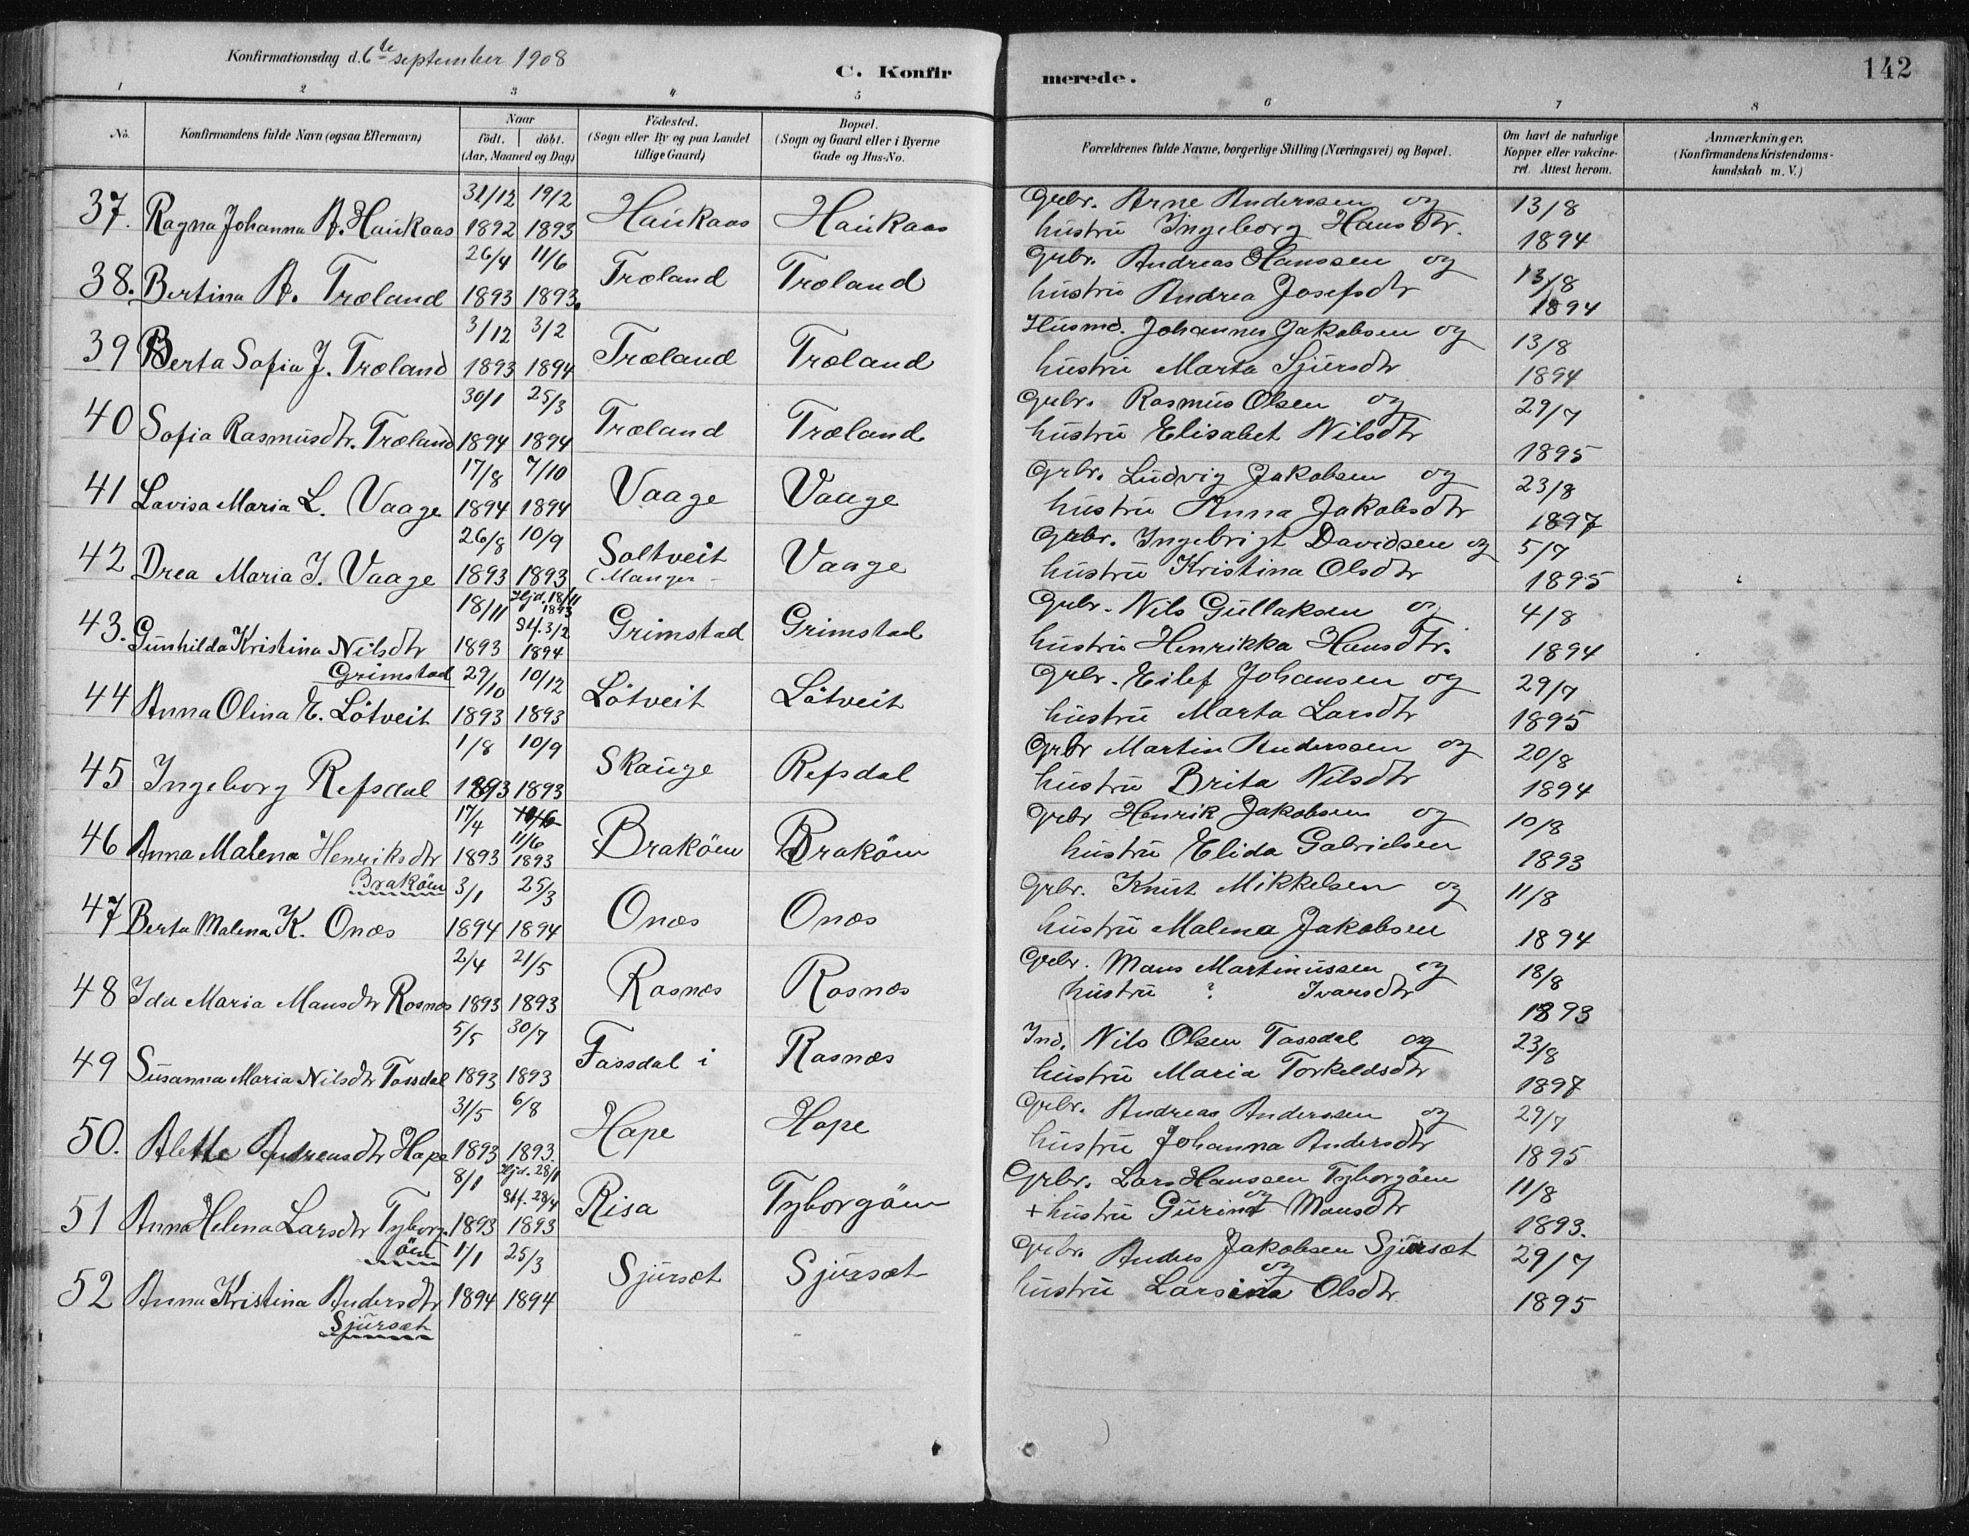 Konfirmationsdag d. 6te september 1908
C. Konfir
merede.
142
1 2 3 4 5 6 7 8
No. Konfirmandens fulde Navn (ogsaa Efternavn) Naar födt. döbt. (Aar, Maaned og Dag) Födested. (Sogn eller By og paa Landet tillige Gaard) Bopæl. (Sogn og Gaard eller i Byerne Gade og Hus-No. Forældrenes fulde Navne, borgerlige Stilling (Næringsvei) og Bopæl. Om havt de naturlige Kopper eller vakcineret. Attest herom. Anmærkninger. (Konfirmandens Kristendomskundskab m. V.)
31/12 19/2 Grbr. Arne Anderssen og 13/8
37. Ragna Johanna A. Haukaas 1892 1893 Haukaas Haukaas hustru Ingeborg Hansdtr. 1894
26/4 11/6 Grbr. Andreas Hanssen og 13/8
38. Bertina A. Træland 1893 1893. Træland Træland hustru Andrea Josefsdtr 1894
3/12 3/2 Husmd. Johannes Jakobsen og 13/8
39 Berta Sofia J. Træland 1893 1894 Træland Træland hustru Marta Sjursdtr 1894
30/1 25/3 Grbr. Rasmus Olsen og 29/7
40 Sofia Rasmusdtr. Træland 1894 1894 Træland Træland hustru Elisabet Nilsdtr 1895
17/8 7/10 Grbr. Ludvig Jakobsen og 23/8
41 Lavisa Maria L. Vaage 1894 1894 Vaage Vaage hustru Anna Jakobsdtr 1897
26/8 10/9 Soltveit Grbr. Ingebrigt Davidsen og 5/7
42 Drea Maria I. Vaage 1893 1893 (Manger - Vaage hustru Kristina Olsdtr 1895
18/11 Hjd. 18/11 1893 Grbr. Nils Gullaksen og 4/8
43. Gunhilda Kristina Nilsdtr 1893 Stf. 3/2 1894 Grimstad Grimstad hustru Henrikka Hansdtr. 1894
Grimstad 29/10 10/12 Grbr. Eilef Johansen og 29/7
44 Anna Olina E. Lötveit 1893 1893 Lötveit Lötveit hustru Marta Larsdtr 1895
1/8 10/9 Grbr Martin Anderssen og 20/8
45 Ingeborg Refsdal 1893 1893 Skauge Refsdal hustru Brita Nilsdtr 1894
17/4 11/6 Grbr Henrik Jakobsen og 10/8
46 Anna Malena Henriksdtr 1893 1893 Braköen Braköen hustru Elida Gabrielsen 1893
Braköen 3/1 25/3 Grbr. Knut Mikkelsen og 11/8
47 Berta Malena K. Onæs 1894 1894 Onæs Onæs hustru Malena Jakobsen 1894
2/4 21/5 Grbr. Mans Martinussen og 18/8
48 Ida Maria Mansdtr Rosnæs 1893 1893 Rosnæs Rosnæs hustru ? Ivarsdtr 1893
5/5 30/7 Ind. Nils Olsen Tassdal og 23/8
49 Susanna Maria Nilsdtr Tassdal 1893 1893 Tassdal i Rasnæs hustru Maria Torkeldsdtr 1897
31/5 6/8 Grbr. Andreas Anderssen og 29/7
50. Alette Andreasdtr Hope 1893 1893. Hope Hope hustru Johanna Andersdtr 1895
8/1 Hjd. 28/1 Grbr. Lars Hanssen Tyborgöen og 11/8
51 Anna Helena Larsdtr Tyborg- 1893 Stf. 28/4 1893 Risa Tyborgöen + hustru Gurina Mansdtr 1893.
öen 1/1 25/3 Grbr. Anders Jakobsen Sjursæt og 29/7
52 Anna Kristina Andersdtr 1894 1894 Sjursæt Sjursæt hustru Larsina Olsdtr 1895
Sjursæt